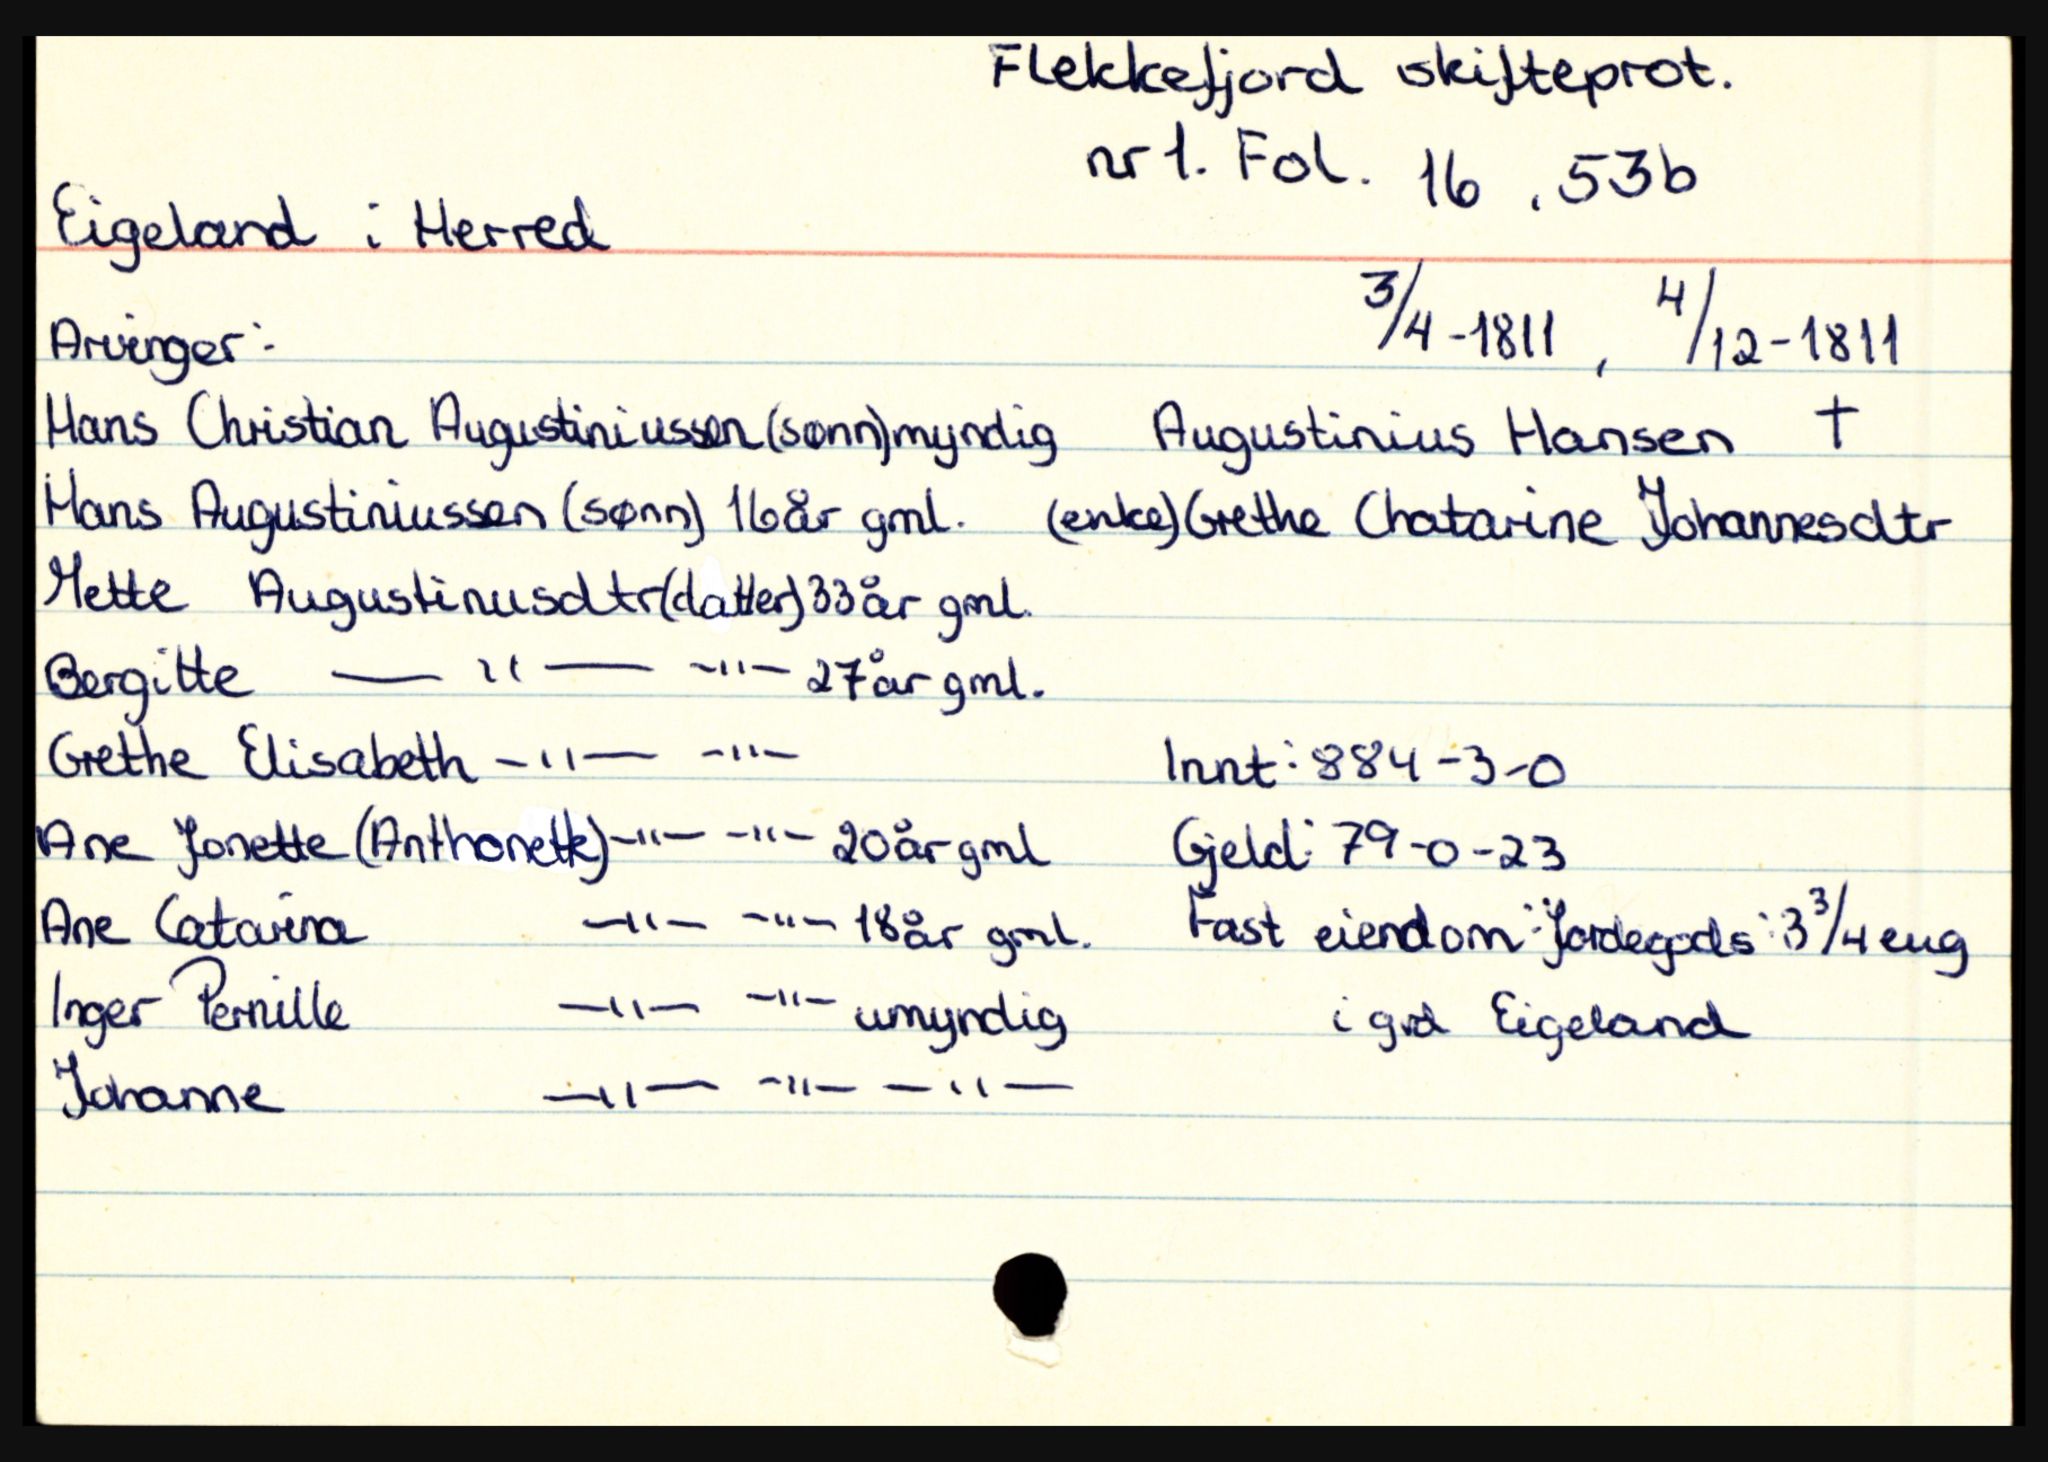 Flekkefjord skifteprot.
nr 1. Fol. 16 , 53b
Eigeland i Herred
3/4-1811 , 4/12-1811
Arvinger:
Hans Christian Augustiniussen (sønn) myndig Augustinius Hansen †
Hans Augustiniussen (sønn) 16 år gml. (enke) Grethe Chatarine Johannesdtr
Mette Augustinusdtr (datter) 33 år gml.
Bergitte — " — -"- 27 år gml.
Grethe Elisabeth -"- -"- Innt: 884-3-0
Ane Jonette (Anthonette) -"- -"- 20 år gml Gjeld: 79-0-23
Ane Catarina -"- -"- 18 år gml. Fast eiendom: Jordegods: 3 3/4 eug
Inger Pernille -"- -"- umyndig i grd Eigeland
Johanne -"- -"- — " —